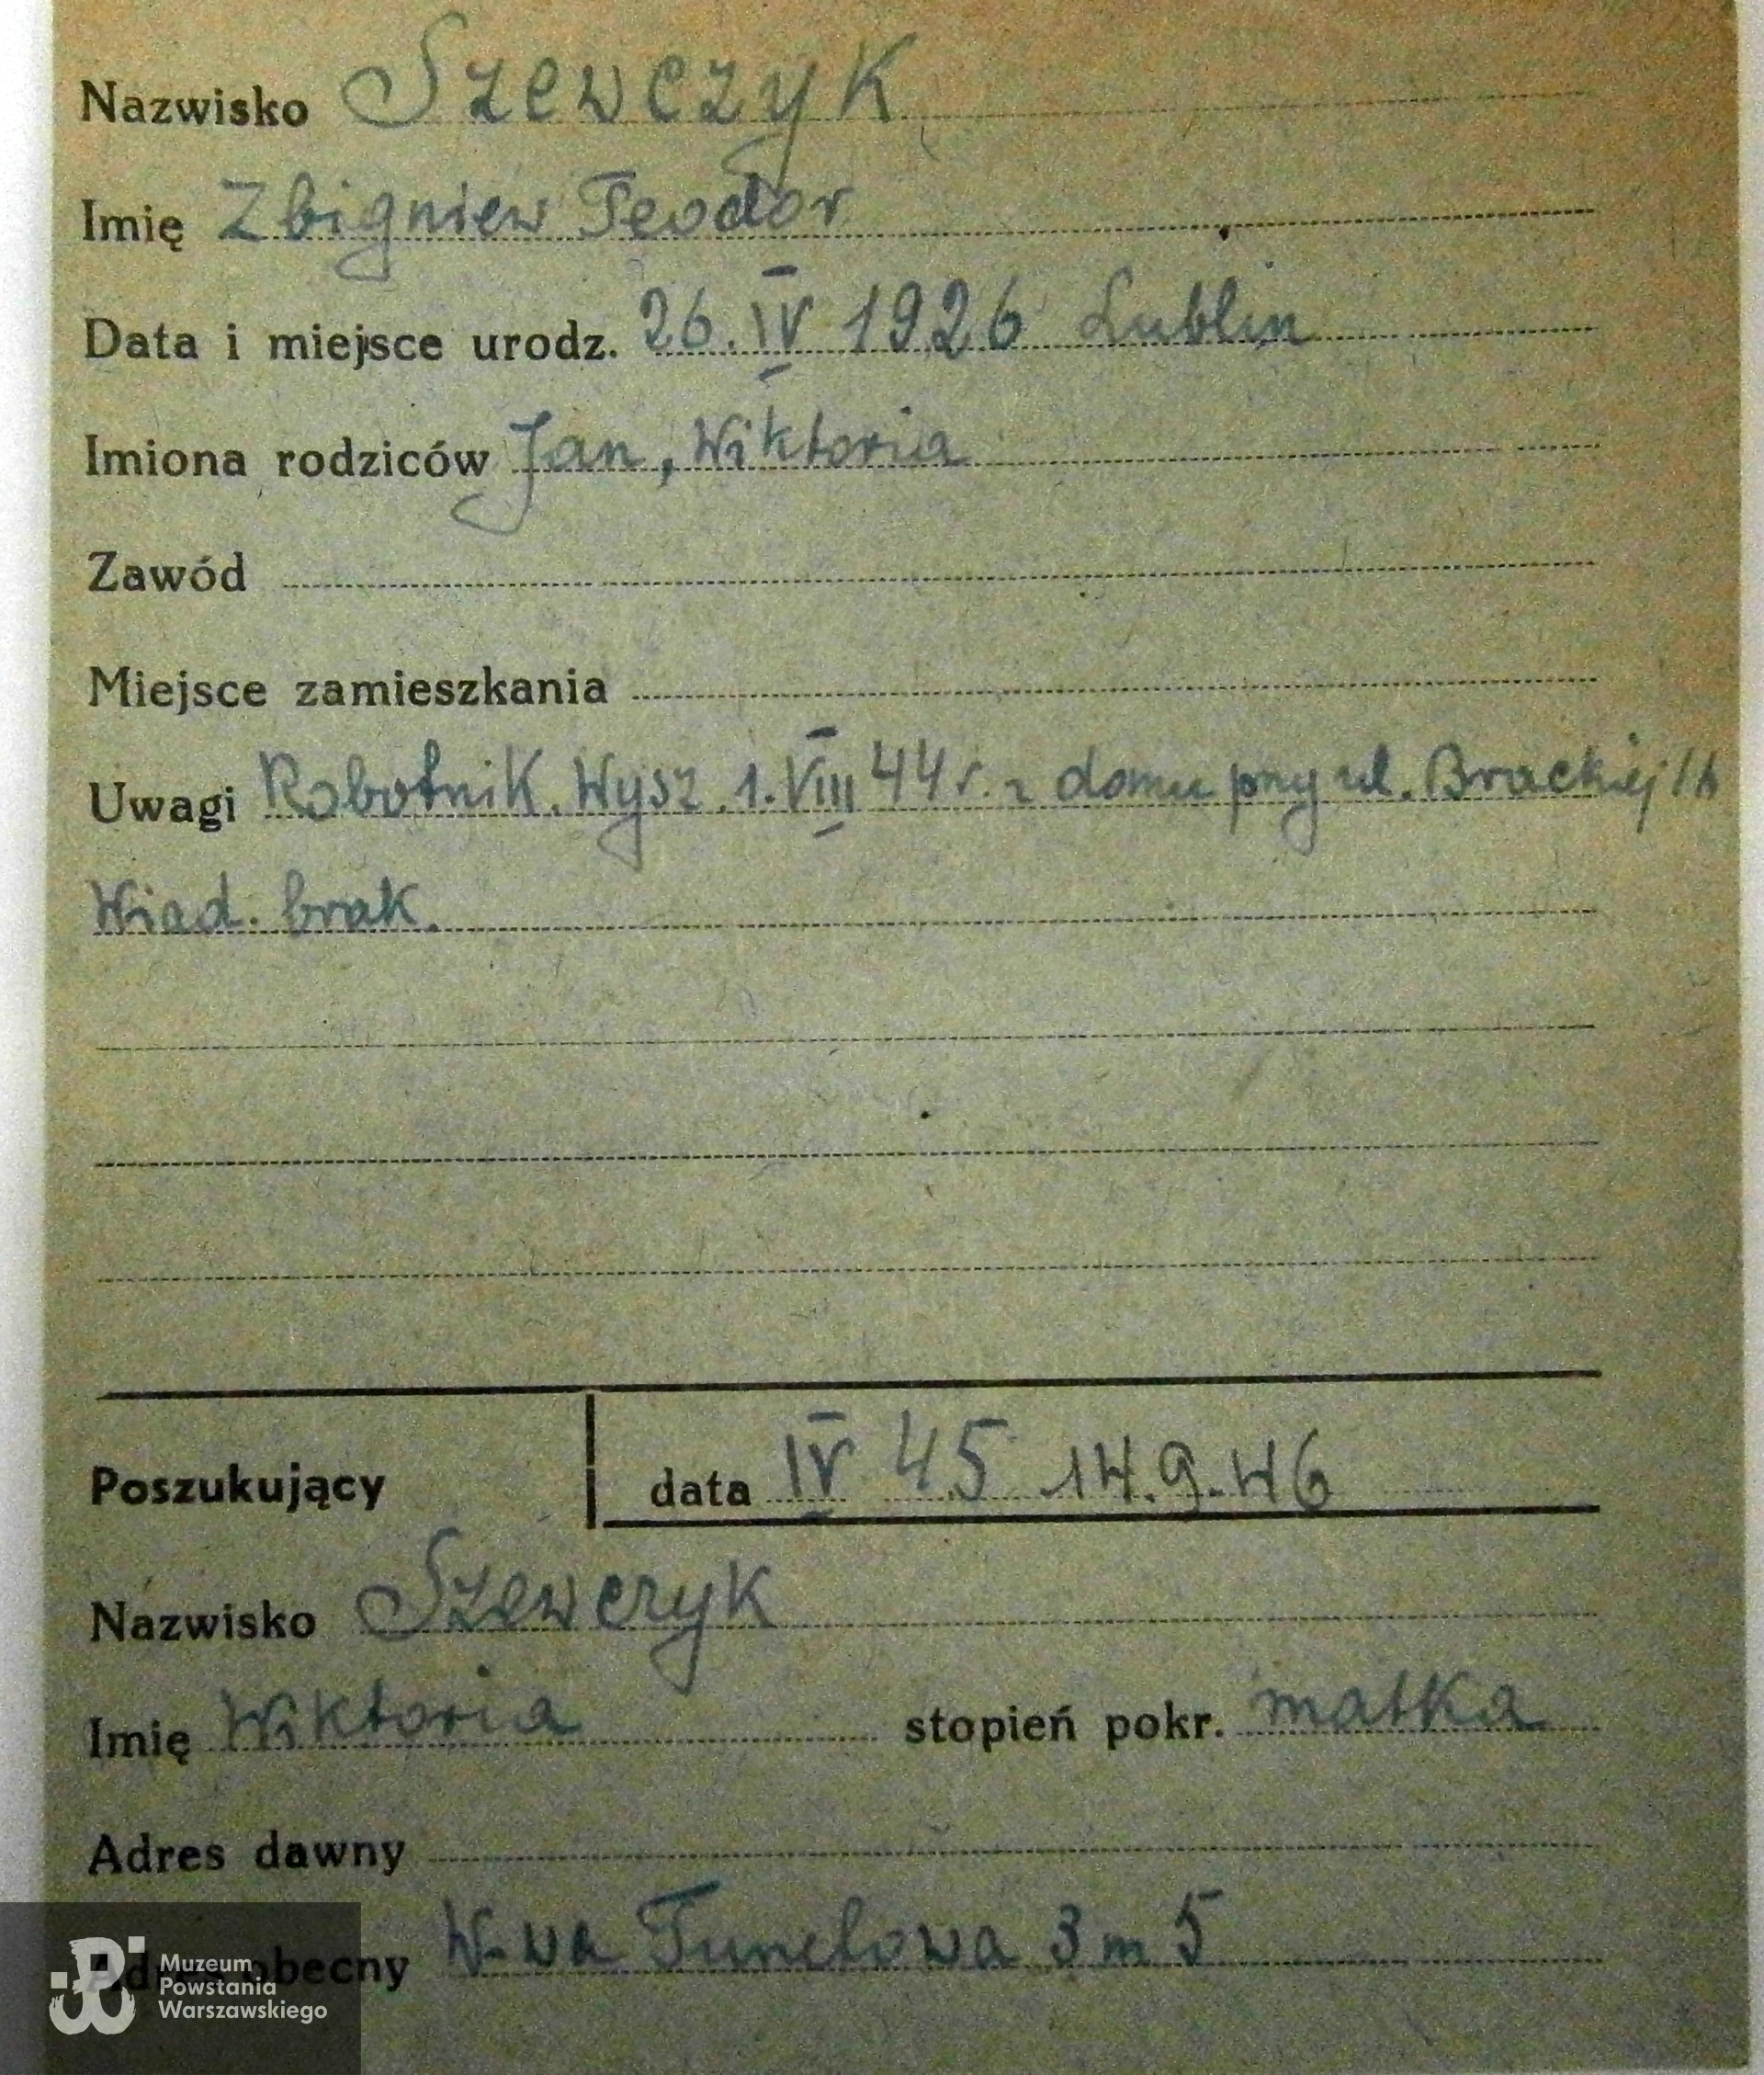 Nazwisko Szewczyk
Imię Zbigniew Teodor
Data i miejsce urodz. 26. IV 1926 Lublin
Imiona rodziców Jan, Wiktoria
Zawód
Miejsce zamieszkania
Uwagi Robotnik. Wysz. 1. VIII 44 r. z domu przy ul. Brackiej
Wiad. brak.
Poszukujący data IV 45 14.9.46
Nazwisko Szewczyk
Imię Wiktoria stopień pokr. matka
Adres dawny
Adres obecny W-wa Tunelowa 3 m 5
Muzeum
Powstania
Warszawskiego